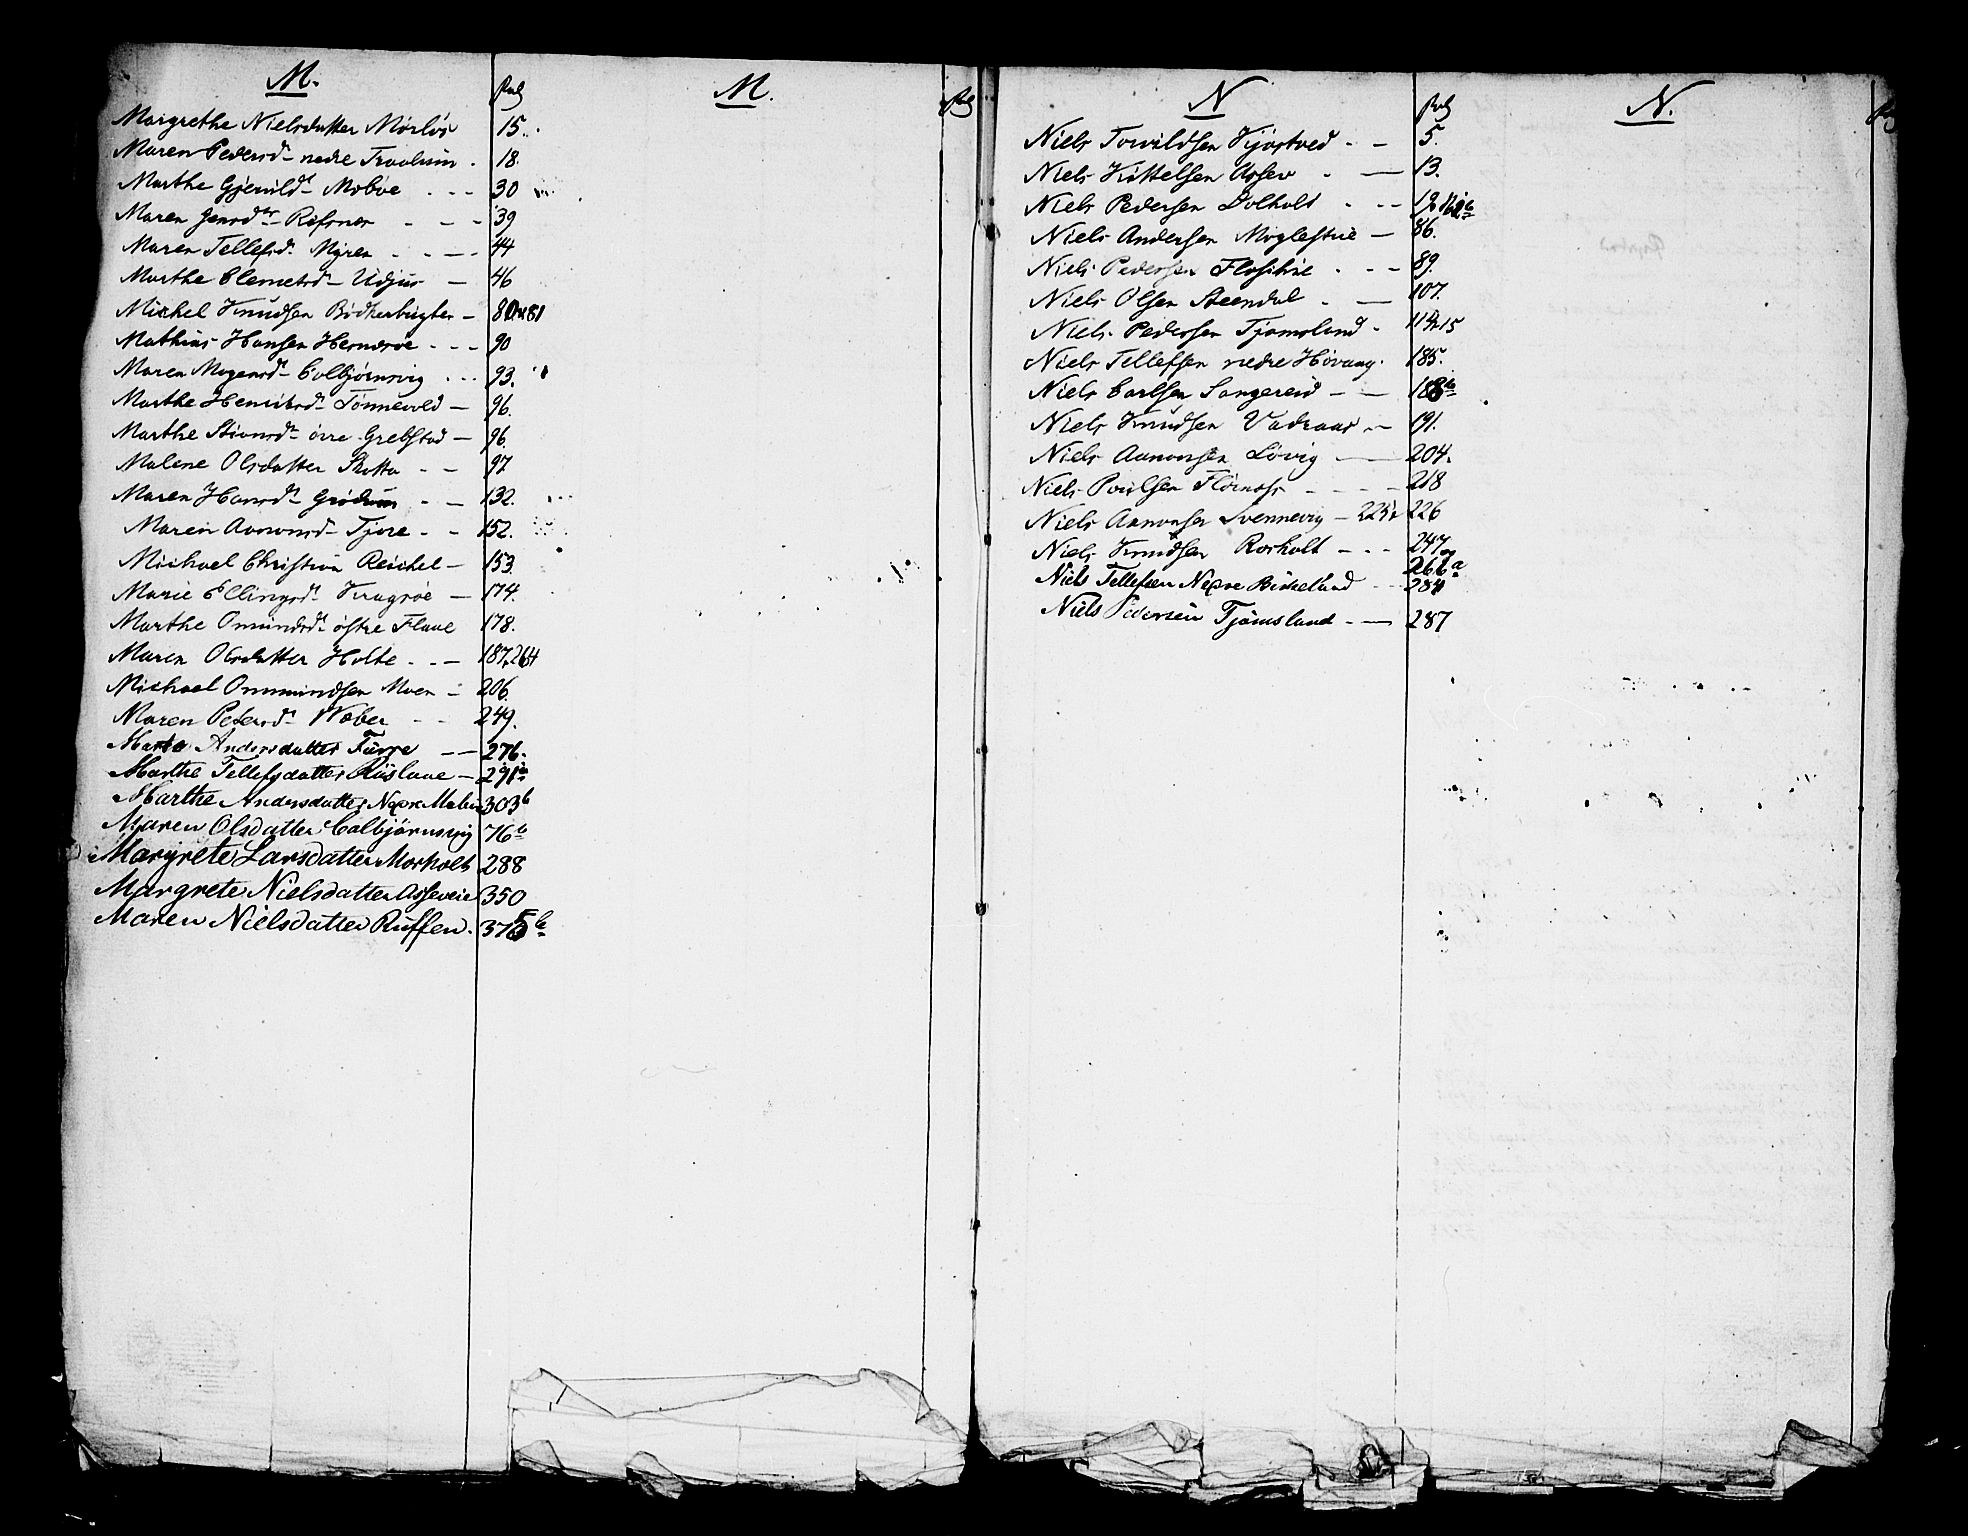 M.
Pag
Margrethe Nielsdatter Mörlös 15.
Maren Pedersd. nedre 18.
Marthe Gjerulds Moböe - - - 30
Maren Jensdtr. Refsnes - - - 39
Maren Tellefsd. Myren - - - - 44
Marthe Clemetsd. Udjus - 46
Michel Knudsen Bödkerbugten - 80 81
Mathias Hansen Hernæsöe - - - 90
Maren Mogensd. Colbjörnsvig - - - 93.
Marthe Henriksd. Tönnevold - 96.
Marthe övre Grebstad - 96.
Malene Olsdatter Skotta - - 97
Maren Hansd. - - 132.
Maren Aanonsd. Tjore - - 152.
Michael Christian Reichel - 153.
Marie Ellingsd. Kragröe - 174.
Marthe Omundsd. östre Flaae 178.
Maren Olsdatter Holte - - - 187. 264
Michael Ommundsen Moen - 206.
Maren Petersd. Wæber - - 249.
Andersdatter Furre - - 276.
Marthe Tellefsdatter Riislaae - 291
Marthe Andersdatter 303b
Maren Olsdatter Colbjörnsvig 76b
Margrete Larsdatter Morholt 288
Margrete Nielsdatter Asseveie 350
Maren Nielsdatter Ruffen. 375b
M.
Pag
N
Pag
Niels Torvildsen Kjöstved - - 5.
Niels Kittelsen Assev - - 13.
Niels Pedersen Dolholt - - -
Niels Andersen Moglestue - 86.
Niels Pedersen - - - 89.
Niels Olsen Steendal - - 107.
Niels Pedersen Tjomsland - 114 15
Niels Tellefsen nedre Hövaag - 185.
Niels Carlsen Sangereid - - 188b
Niels Knudsen Vadraas - - 191.
Niels Aanonsen Lövig - 204.
Niels Poulsen Flörenæss - - - - 218
Niels Aanonsen Svennevig - 225 226
Niels Knudsen Rosholt - - - 247
266a
Niels Tellefsen Nedre Birkeland - - 284
Niels Pedersen Tjömsland - - 287
N.